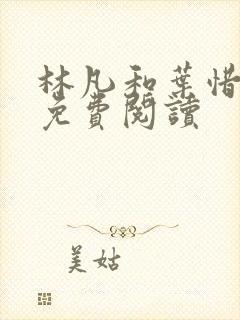 林凡和葉惜
免費閱讀
美姑